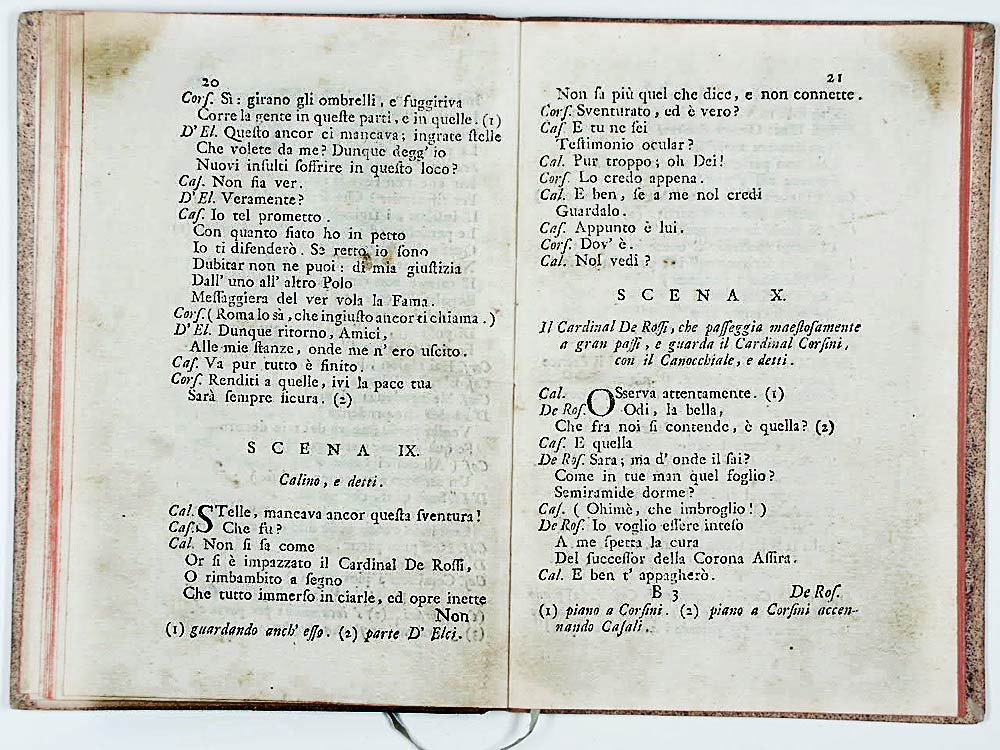 20
Corſ. Sì: girano gli ombrelli, e fuggitiva
Corre la gente in queſte parti, e in quelle. (1)
D' El. Queſto ancor ci mancava; ingrate ſtelle
Che volete da me? Dunque degg' io
Nuovi inſulti ſoffrire in queſto loco?
Caſ. Non ſia ver.
D' El. Veramente?
Caſ. Io tel prometto.
Con quanto fiato ho in petto
Io ti difenderò. Se retto io ſono
Dubitar non ne puoi: di mia giuſtizia
Dall' uno all' altro Polo
Meſſaggiera del ver vola la Fama.
Corſ. (Roma lo sà, che ingiuſto ancor ti chiama.)
D' El. Dunque ritorno, Amici,
Alle mie ſtanze, onde me n' ero uſcito.
Caſ. Va pur tutto è finito.
Corſ. Renditi a quelle, ivi la pace tua
Sarà ſempre ſicura. (2)
SCENA IX.
Calino, e detti.
Cal. STelle, mancava ancor queſta ſventura!
Caſ. Che fu?
Cal. Non ſi ſa come
Or ſi è impazzato il Cardinal De Roſſi,
O rimbambito a ſegno
Che tutto immerſo in ciarle, ed opre inette
Non
(1) guardando anch' eſſo. (2) parte D' Elci.
21
Non ſa più quel che dice, e non connette.
Corſ. Sventurato, ed è vero?
Caſ E tu ne ſei
Teſtimonio oculare?
Cal. Pur troppo; oh Dei!
Corſ. Lo credo appena.
Cal. E ben, ſe a me nol credi
Guardalo.
Caſ. Appunto è lui.
Corſ. Dov' è.
Cal. Nol vedi?
SCENA X.
Il Cardinal De Roſſi, che paſſeggia maeſtoſamente
a gran paſſi, e guarda il Cardinal Corſini,
con il Canocchiale, e detti.
Cal. OSserva attentamente. (1)
De Roſ. Odi, la bella,
Che fra noi ſi contende, è quella? (2)
Caſ. E quella
De Roſ. Sara; ma d' onde il ſai?
Come in tue man quel foglio?
Semiramide dorme?
Caſ. (Ohimè, che imbroglio!)
De Roſ. Io voglio eſſere inteſo
A me ſpetta la cura
Del ſucceſſor della Corona Aſſira.
Cal. E ben t' appagherò.
B 3 De Roſ.
(1) piano a Corſini. (2) piano a Corſini accen-
nando Caſali.